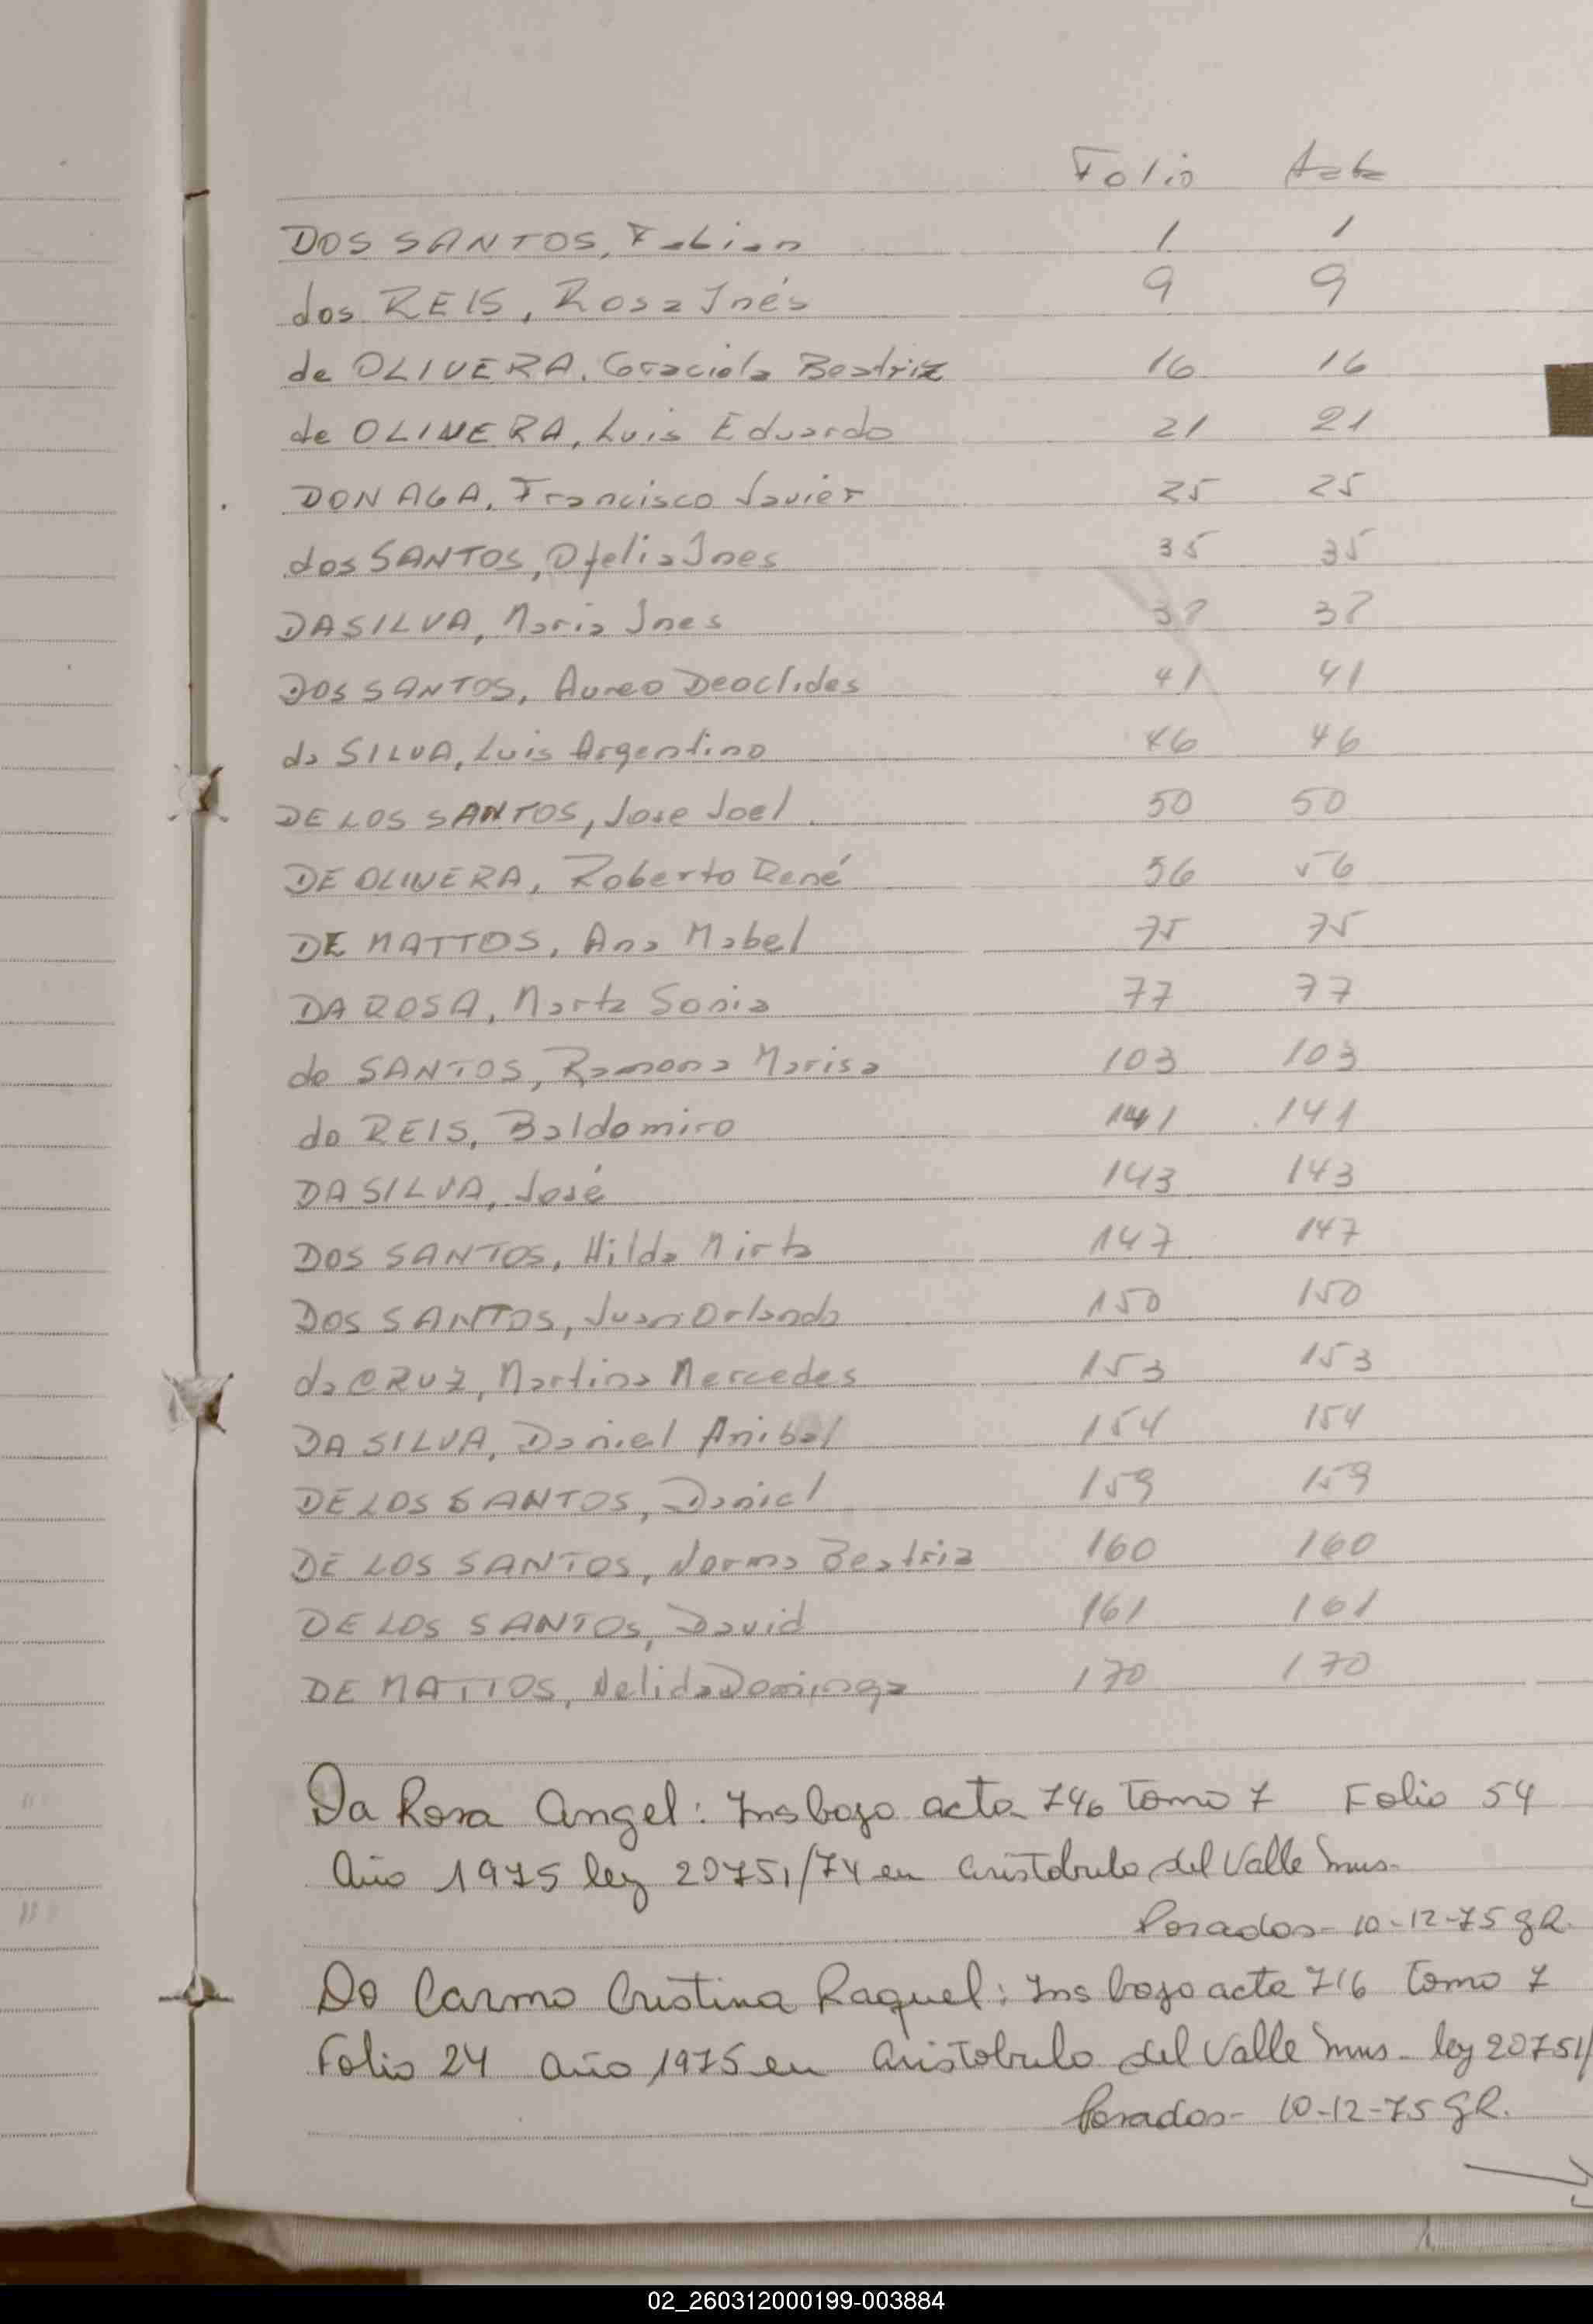 Folio Acta
DOS SANTOS, Fabian 1 1
dos REIS, Rosa Inés 9 9
de OLIVERA, Graciela Beatriz 16 16
de OLIVERA, Luis Eduardo 21 21
DONAGA, Francisco Javier 25 25
dos SANTOS, Ofelia Ines 35 35
DA SILVA, Maria Ines
DOS SANTOS, Aureo Deoclides 41 41
da SILVA, Luis Argentino 46 46
DE LOS SANTOS, Jose Joel. 50 50
DE OLIVERA, Roberto René 56 56
DE MATTOS, Ana Mabel 75 75
DA ROSA, Marta Sonia 77 77
do SANTOS, Ramona Marisa 103 103
do REIS, Baldomiro 141 141
DA SILVA, José 143 143
DOS SANTOS, Hilda Mirta 147 147
DOS SANTOS, Juan Orlando 150 150
da CRUZ, Martina Mercedes 153 153
DA SILVA, Daniel Anibal 154 154
DE LOS SANTOS, Daniel 159 159
DE LOS SANTOS, Norma Beatriz 160 160
DE LOS SANTOS, David 161 161
DE MATTOS, Nelida Dominga 170 170
Da Rosa Angel: Ins bajo acta 746 Tomo 7 Folio 54
Año 1975 ley 20751/74 en Aristobulo del Valle Mns.
Posadas- 10-12-75 GR.
Do Carmo Cristina Raquel: Ins bajo acta 716 Tomo 7
Folio 24 Año 1975 en Aristobulo del Valle Mns- ley 20751/
Posadas- 10-12-75 GR.
02_260312000199-003884